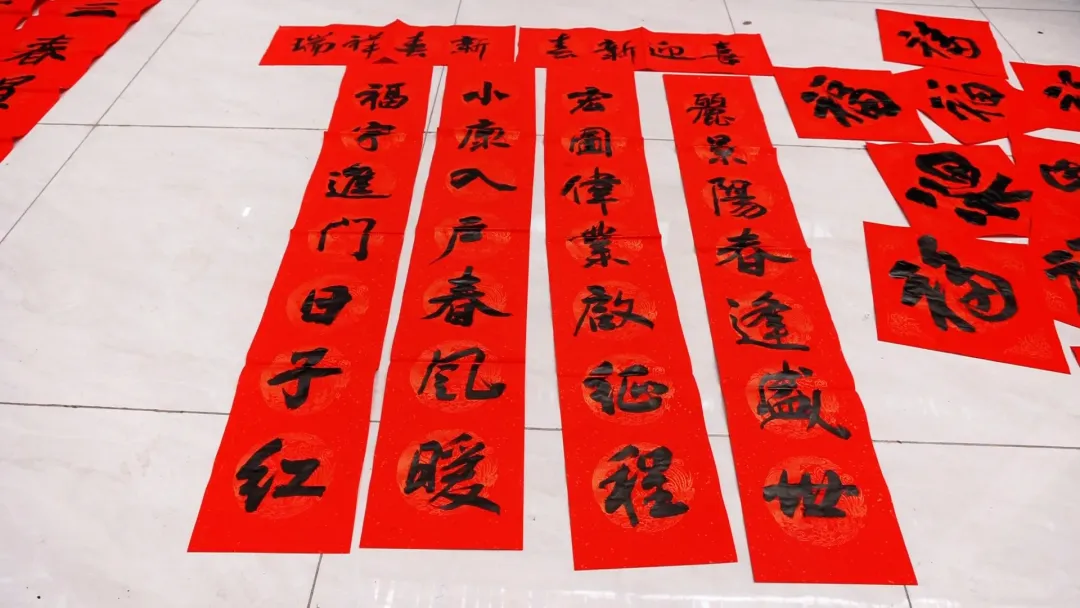 喜迎新春
麗景陽春逢盛世
宏圖偉業啟征程
新春祥瑞
小康入户春风暖
福字進门日子红
福
福
福
福
福
三
春